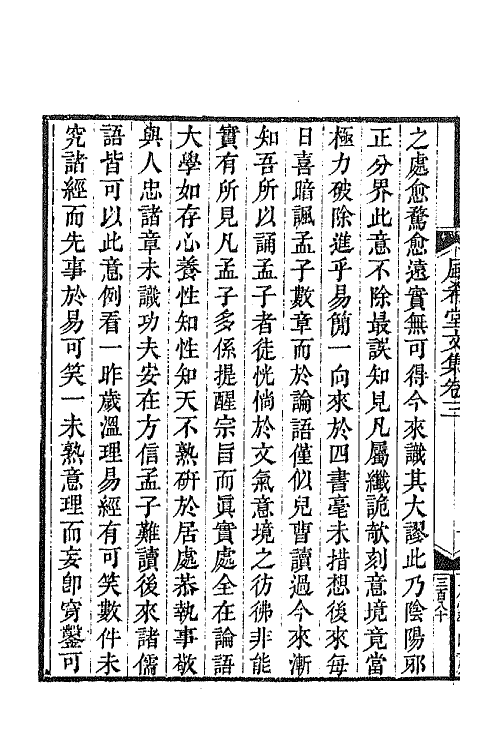 之處愈騖愈遠實無可得今來識其大謬此乃陰陽邪
正分界此意不除最誤知見凡屬纖詭欹刻意境竟當
極力破除進乎易簡一向來於四書毫未措想後來每
日喜暗諷孟子數章而於論語僅似兒曹讀過今來漸
知吾所以誦孟子者徒恍惝於文氣意境之彷彿非能
實有所見凡孟子多係提醒宗旨而眞實處全在論語
大學如存心養性知性知天不熟硏於居處恭執事敬
與人忠諸章未識功夫安在方信孟子難讀後來諸儒
語皆可以此意例看一昨歲溫理易經有可笑數件未
究詁經而先事於易可笑一未熟意理而妄卽穷鑿可
風希堂文集卷三
三百八十